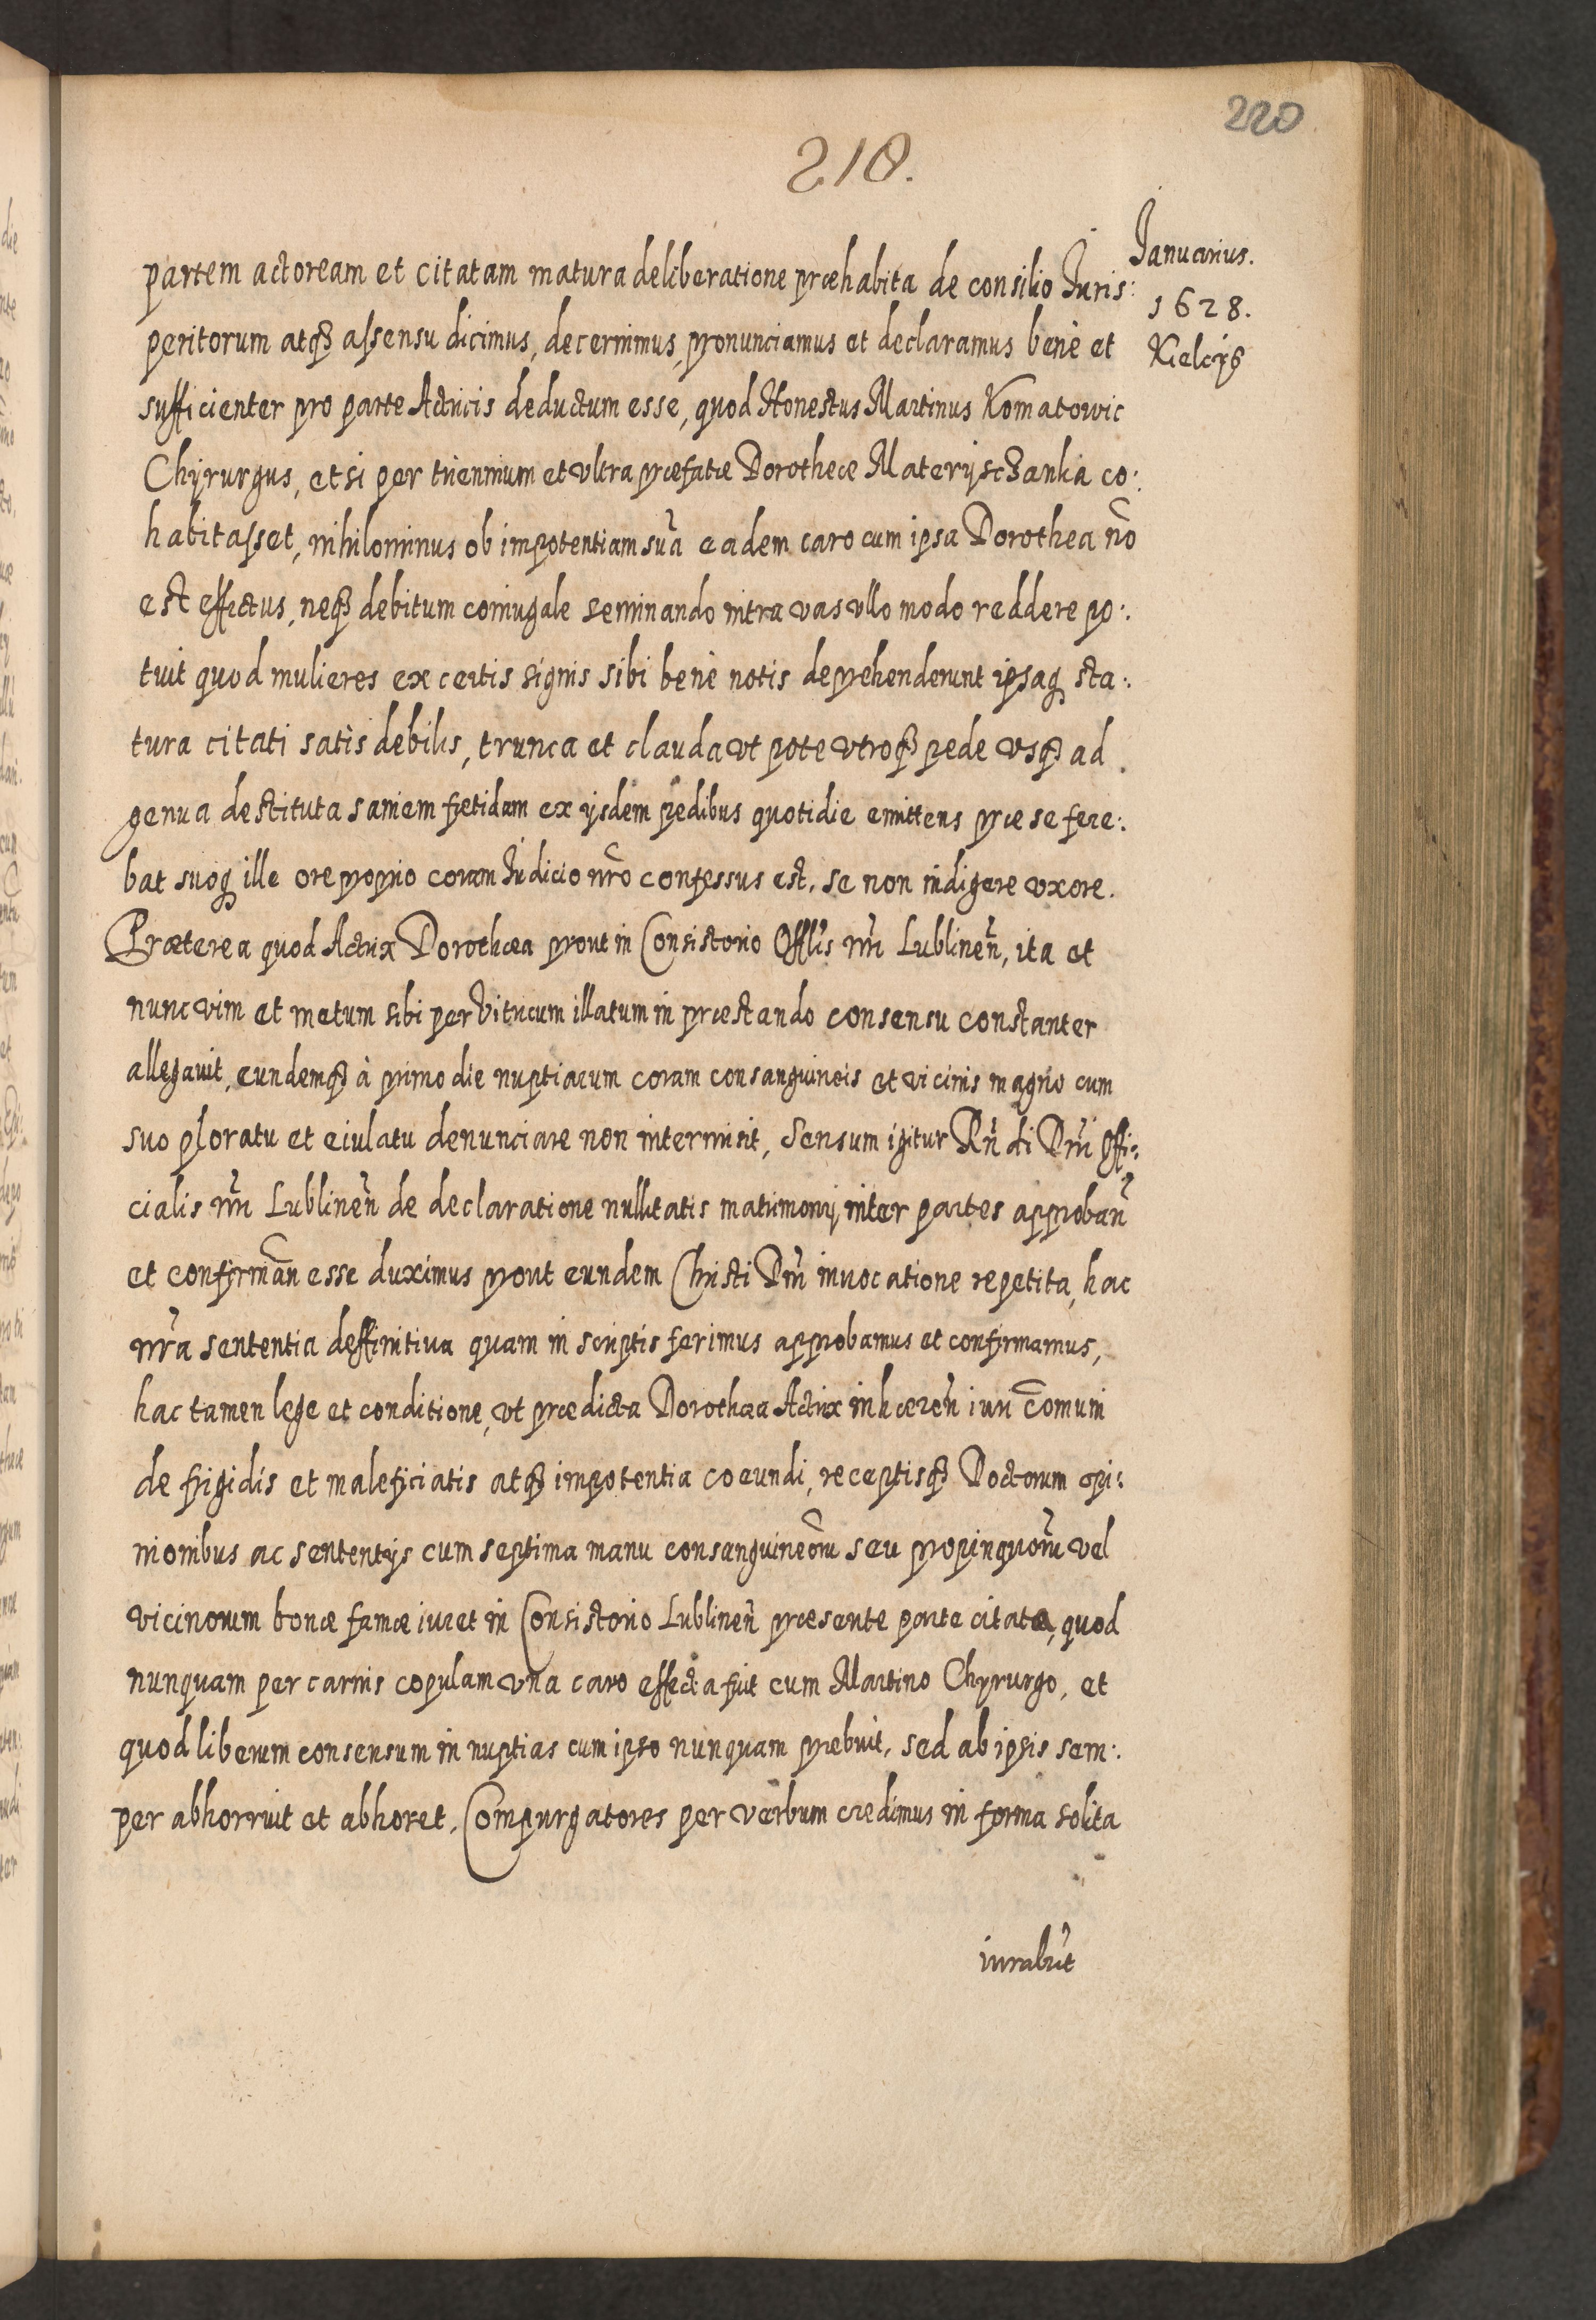 220
218.
Januarius.
1628.
Kielcijs
partem actoream et citatam matura deliberatione præhabita de consilio Juris:
peritorum atq₃ assensu dicimus, decernimus, pronunciamus et declaramus benè et
sufficienter pro parte Actricis deductum esse, quod Honestus Martinus Komatowic
Chÿrurgus, etsi per triennium et vltra præfatæ Dorotheæ Materÿsczanka co:
habitasset, nihilominus ob impotentiam suã eadem caro cum ipsa Dorothea nõ
est effectus, neq₃ debitum coniugale seminando intra vas vllo modo reddere po:
tuit quod mulieres ex certis signis sibi benè notis deprehenderunt ipsaq₃ sta:
tura citati satis debilis, trunca et clauda vt pote vtroq₃ pede vsq₃ ad
genua destituta saniem fætidam ex ijsdem pedibus quotidie emittens præ se fere:
bat suoq₃ ille ore proprio coram Judicio nr̃o confessus est, se non indigere vxore.
Præterea quod Actrix Dorothæa prout in Consistorio Offlis nr̃i Lublineñ, ita et
nunc vim et metum sibi per Vitricum illatum in præstando consensu constanter
allegauit, eundemq₃ à primo die nuptiarum coram consanguineis et vicinis magno cum
suo ploratu et eiulatu denunciare non intermisit, Sensum igitur Rñdi Dñi Offi:
cialis nr̃i Lublineñ de declaratione nullitatis matrimonij inter partes approbañ
et confirmañ esse duximus prout eundem Christi Dñi inuocatione repetita, hac
nr̃a sententia deffinitiua quam in scriptis ferimus approbamus et confirmamus,
hac tamen lege et conditione, vt prædicta Dorothæa Actrix inhæreñ iuri cõmuni
de frigidis et maleficiatis atq₃ impotentia coeundi, receptisq₃ Doctorum opi:
nionibus ac sententijs cum septima manu consanguineõru seu propinquor̃u vel
vicinorum bonæ famæ iuret in Consistorio Lublineñ præsente parte citata, quod
nunquam per carnis copulam vna caro effecta fuit cum Martino Chyrurgo, et
quod liberum consensum in nuptias cum ipso nunquam præbuit, sed ab ipsis sem:
per abhorruit et abhoret. Compurgatores per verbum credimus in forma solita
iurabũt